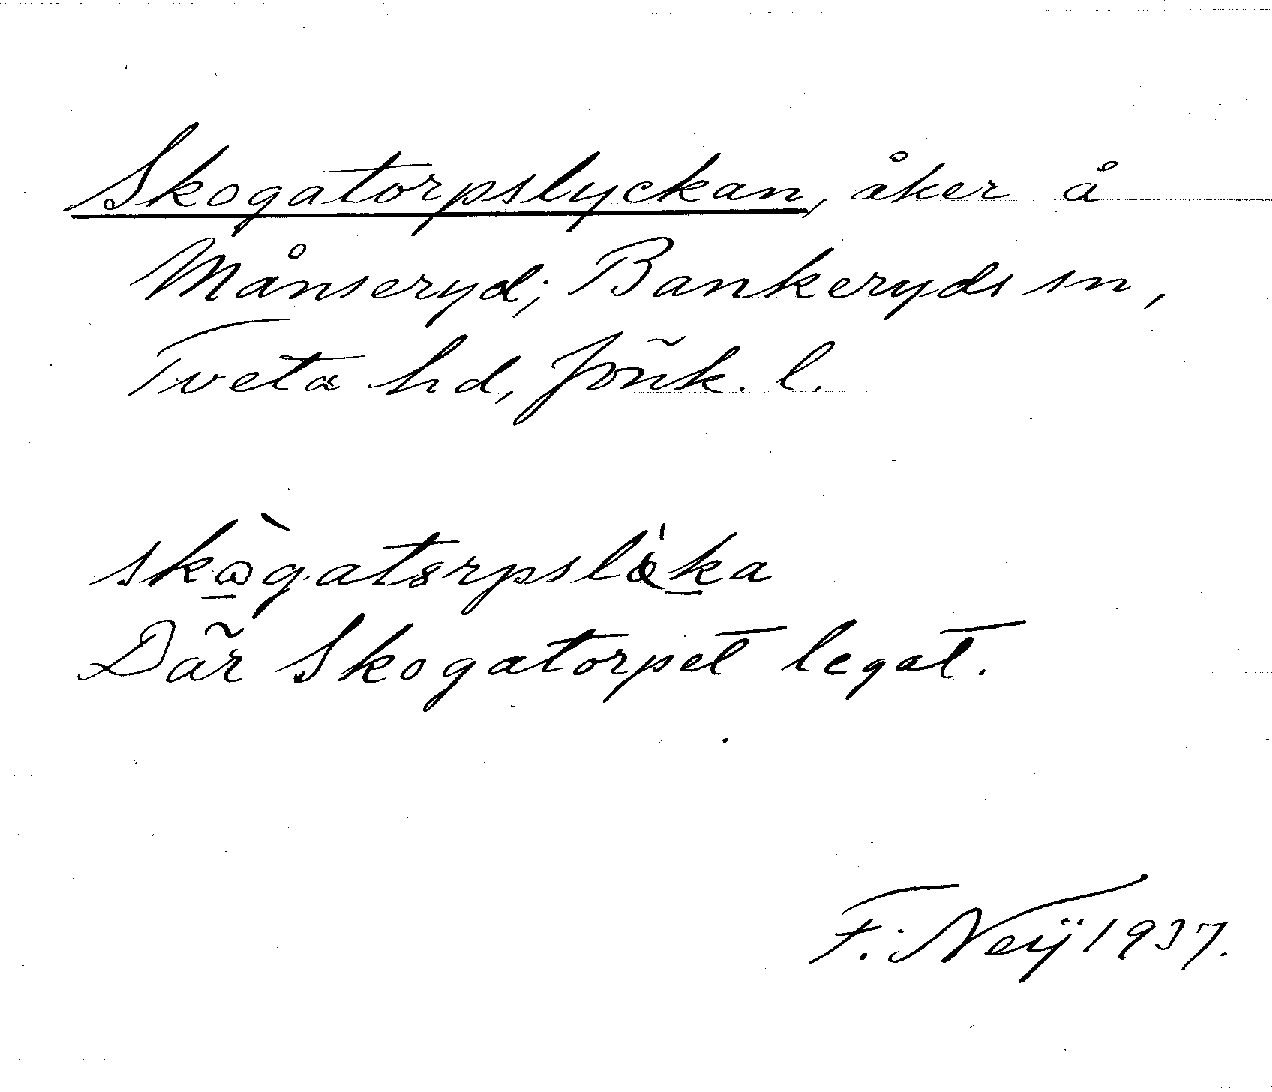 Skogatorpslyckan, åker å
Månseryd; Bankeryds sn,
Tveta hd, Jönk. l.
Där Skogatorpet legat.
F. Neij 1937.